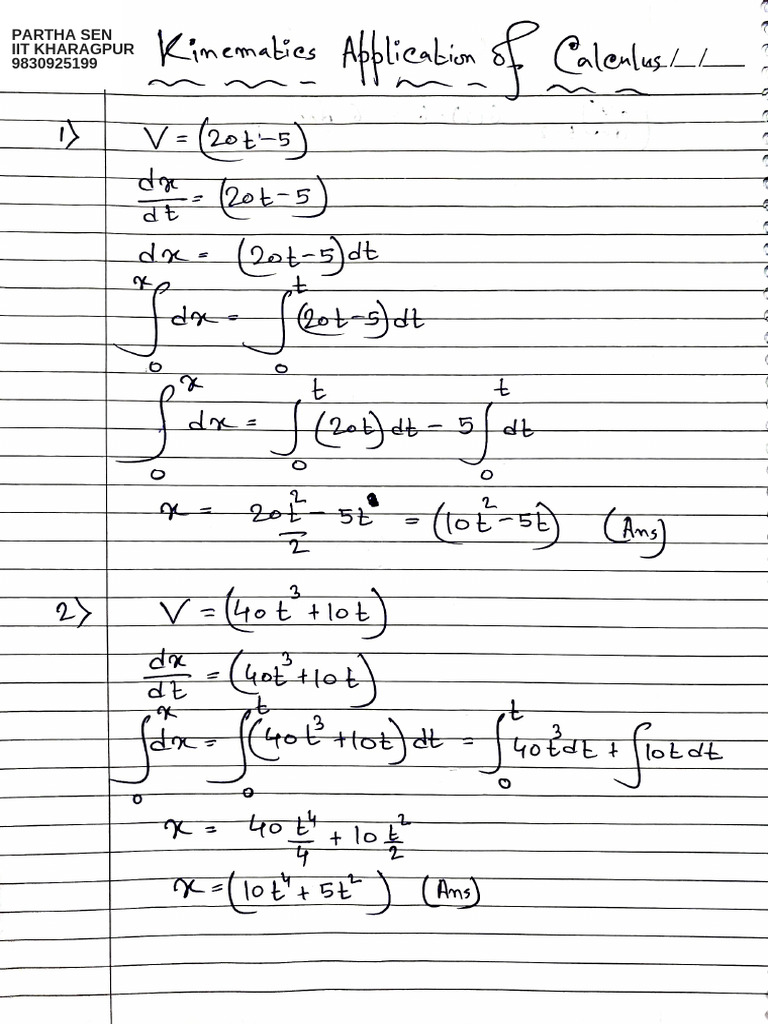 PARTHA SEN
IIT KHARAGPUR
9830925199
Kinematics Application of Calculus / /
1) V = (20t - 5)
dx/dt = (20t - 5)
dx = (20t - 5)dt
∫₀ˣ dx = ∫₀ᵗ (20t - 5)dt
∫₀ˣ dx = ∫₀ᵗ (20t)dt - 5∫₀ᵗ dt
x = 20t²/2 - 5t = (10t² - 5t) (Ans)
2) V = (40t³ + 10t)
dx/dt = (40t³ + 10t)
∫₀ˣ dx = ∫₀ᵗ (40t³ + 10t)dt = ∫₀ᵗ 40t³dt + ∫10t dt
x = 40 t⁴/4 + 10 t²/2
x = (10t⁴ + 5t²) (Ans)